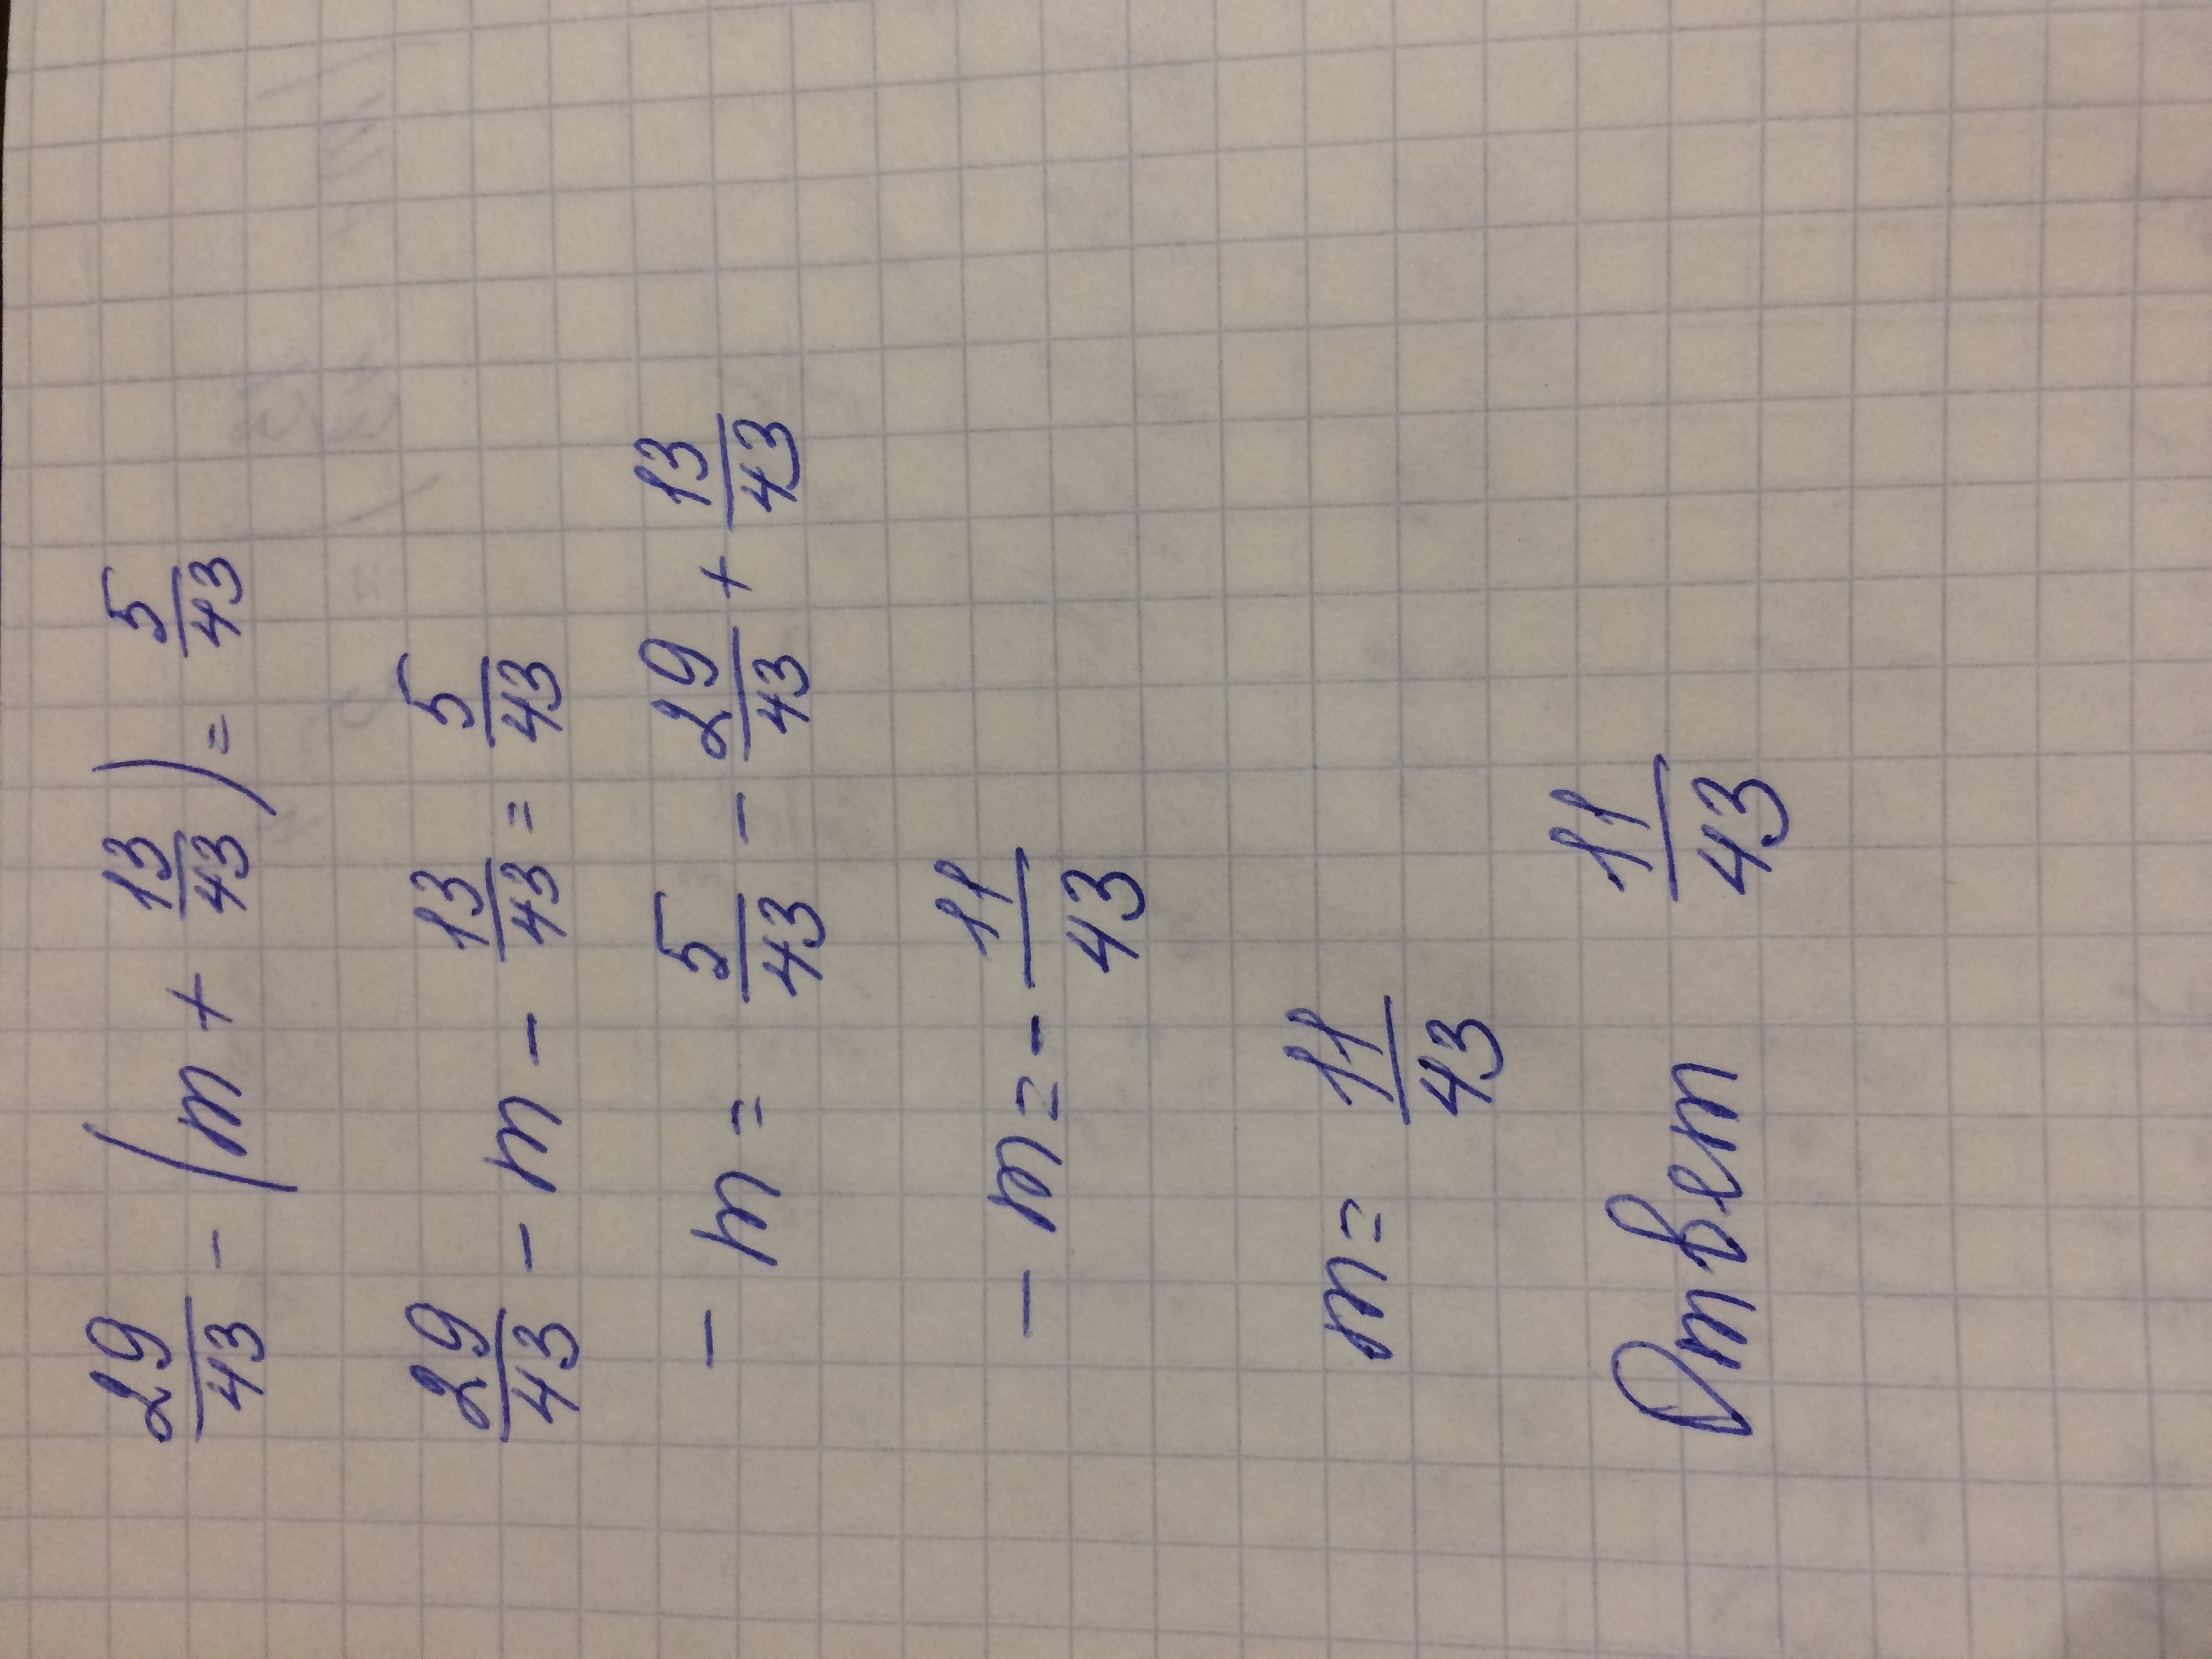 29/43 - (m + 13/43) = 5/43
29/43 - m - 13/43 = 5/43
- m = 5/43 - 29/43 + 13/43
- m = - 11/43
m = 11/43
Ответ 11/43